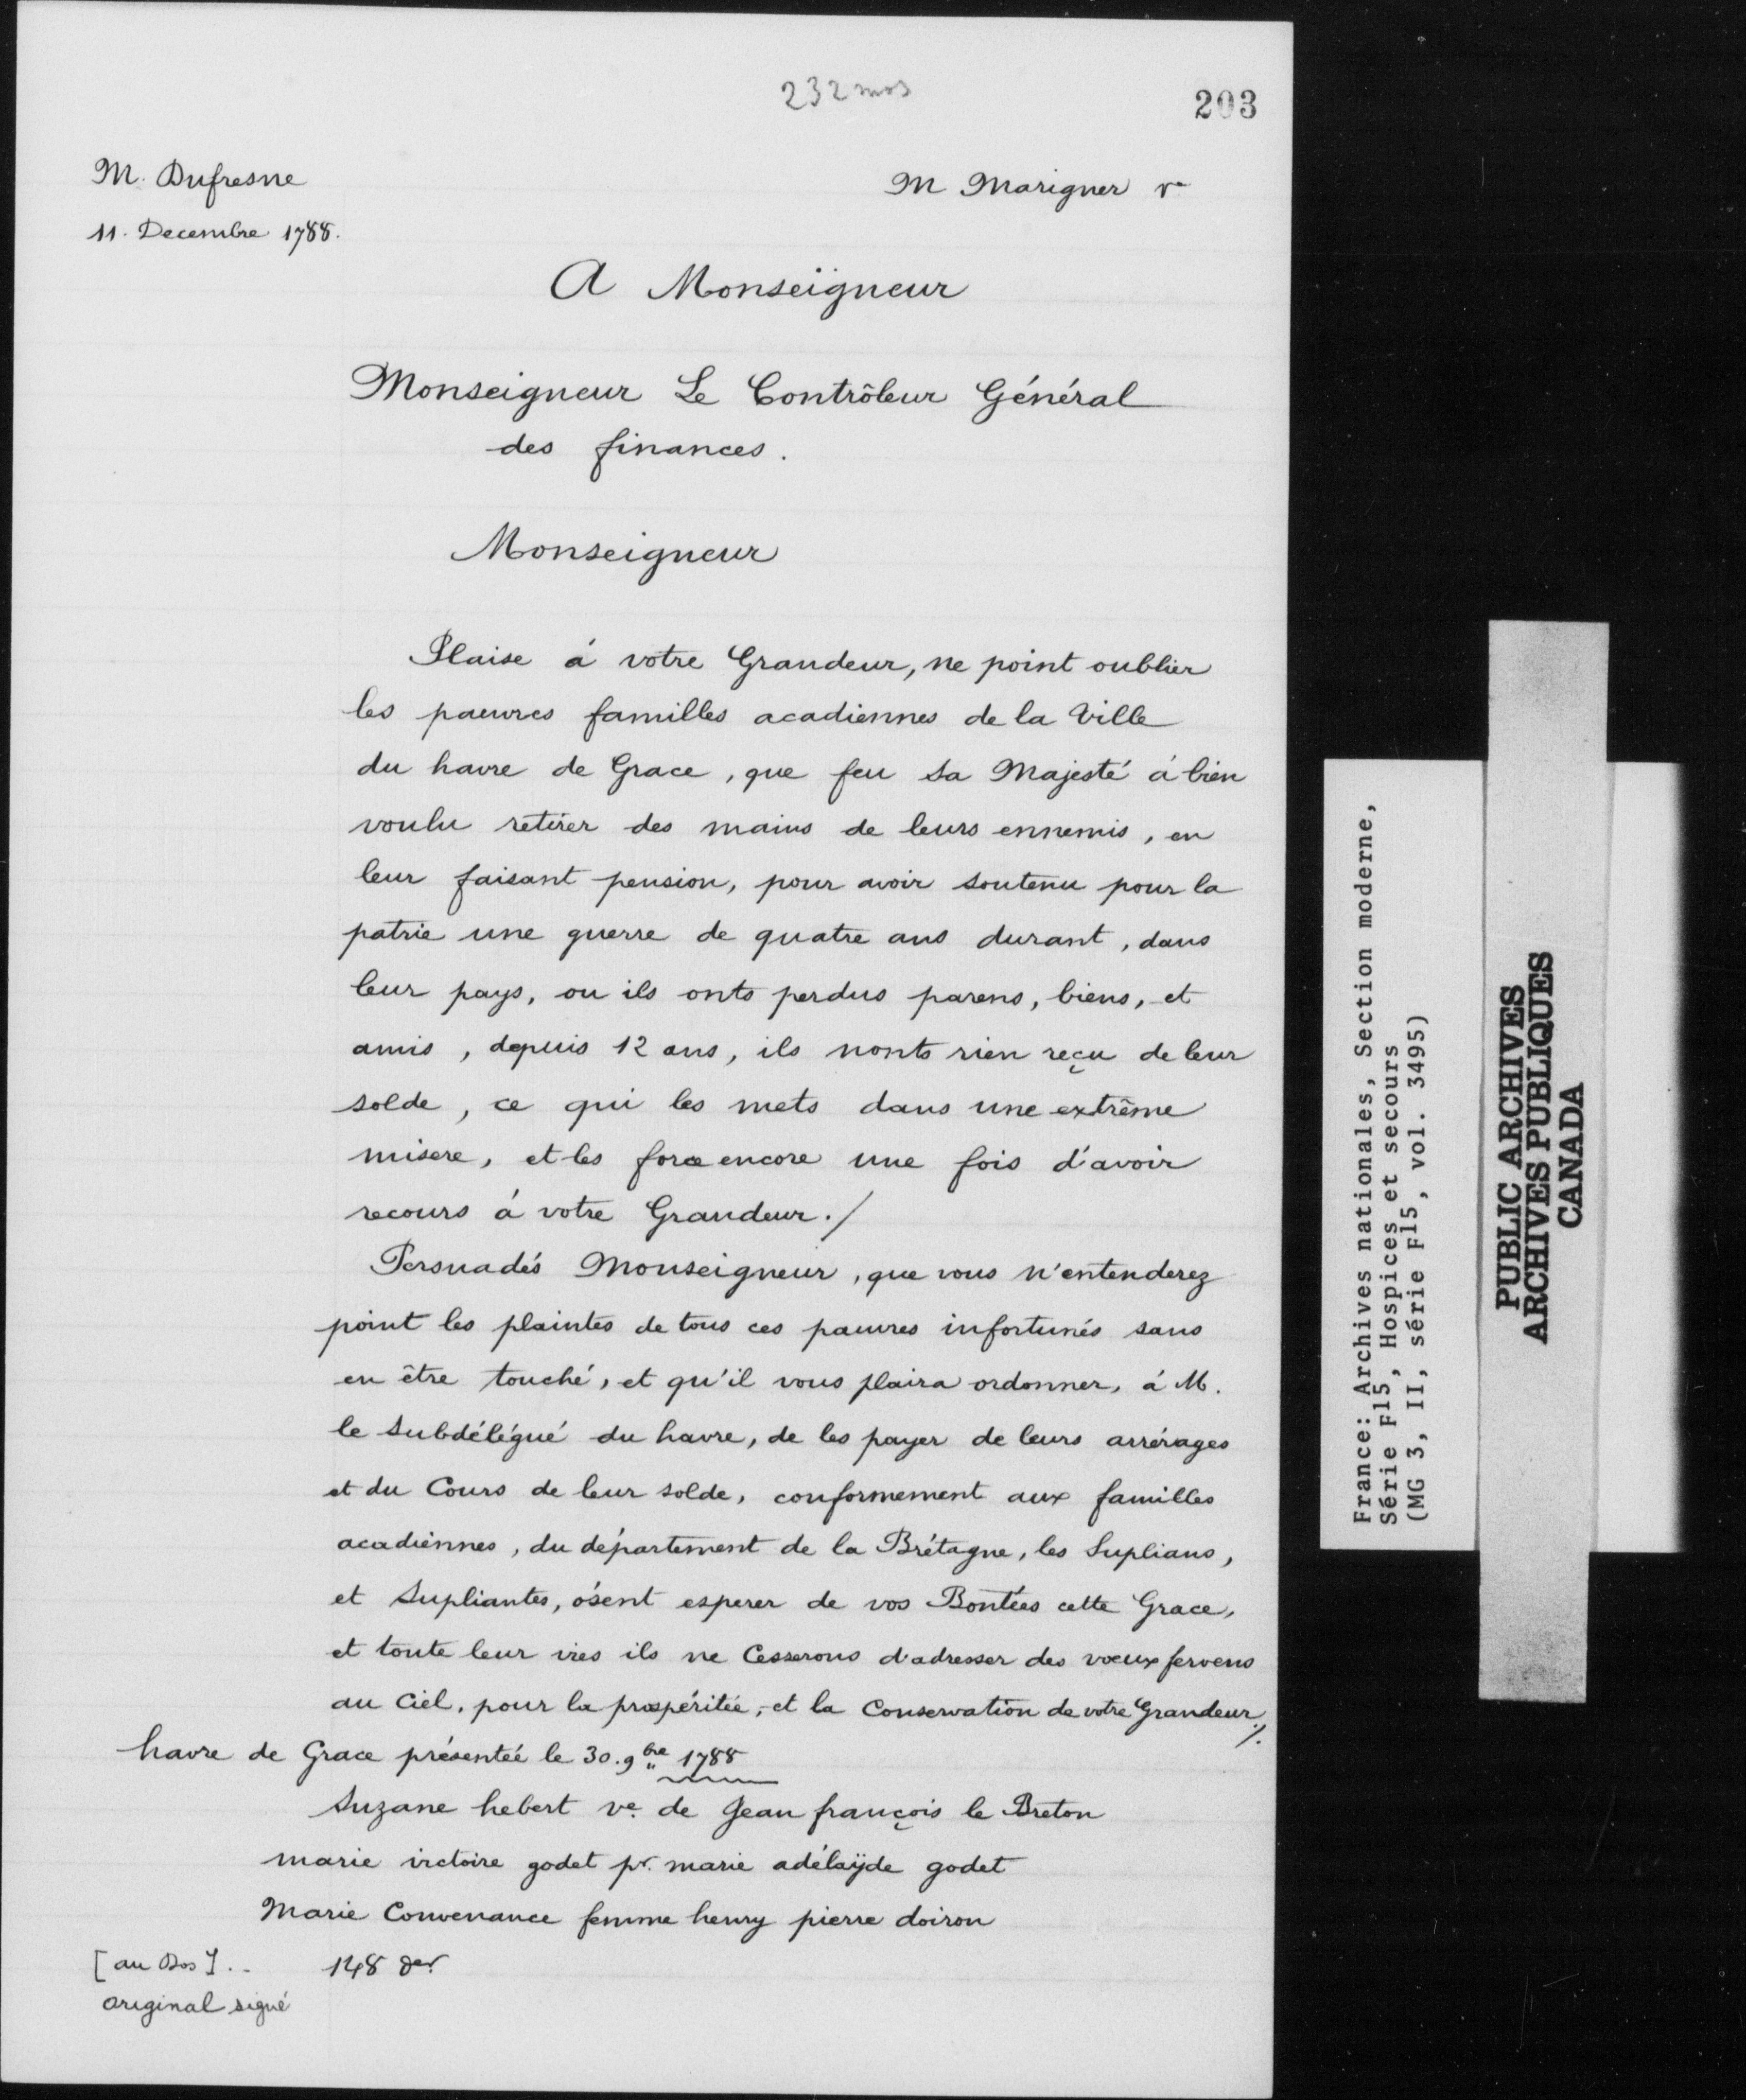 232 mss
203
M. Dufresne
M Marigner
11. Decembre 1788.
A Monseigneur
Monseigneur Le Contrôleur Général
des finances.
Monseigneur
Plaise á votre Grandeur, ne point oublier
les pauvres familles acadiennes de la Ville
du havre de Grace, que feu Sa Majesté á bien
voulu retirer des mains de leurs ennemis, en
leur faisant pension, pour avoir soutenu pour la
patrie une guerre de quatre ans durant, dans
leur pays, ou ils onts perdus parens, biens, et
amis, depuis 12 ans, ils nonts rien reçu de leur
solde, ce qui les mets dans une extrême
misere, et les force encore une fois d'avoir
recours á votre Grandeur./
Persuadés Monseigneur, que vous n'entenderez
point les plaintes de tous ces pauvres infortunés sans
en être touché, et qu'il vous plaira ordonner, á M.
le Subdélégué du havre, de les payer de leurs arrérages
et du Cours de leur solde, conformement aux familles
acadiennes, du département de la Brétagne, les Suplians,
et Supliantes, ósent esperer de vos Bontées cette Grace,
et toute leur vies ils ne Cesserons d'adresser des vœux fervens
au Ciel, pour la prospéritée, et la Conservation de votre Grandeur./.
havre de Grace présentéé le 30. 9bre 1788
Suzane hebert ve. de Jean françois le Breton
marie victoire godet pr. marie adélaÿde godet
Marie Convenance femme henry pierre doiron
[au Dos]..
148 der
original signé
France: Archives nationales, Section moderne,
Série F15, Hospices et secours
(MG 3, II, série F15, vol. 3495)
PUBLIC ARCHIVES
ARCHIVES PUBLIQUES
CANADA